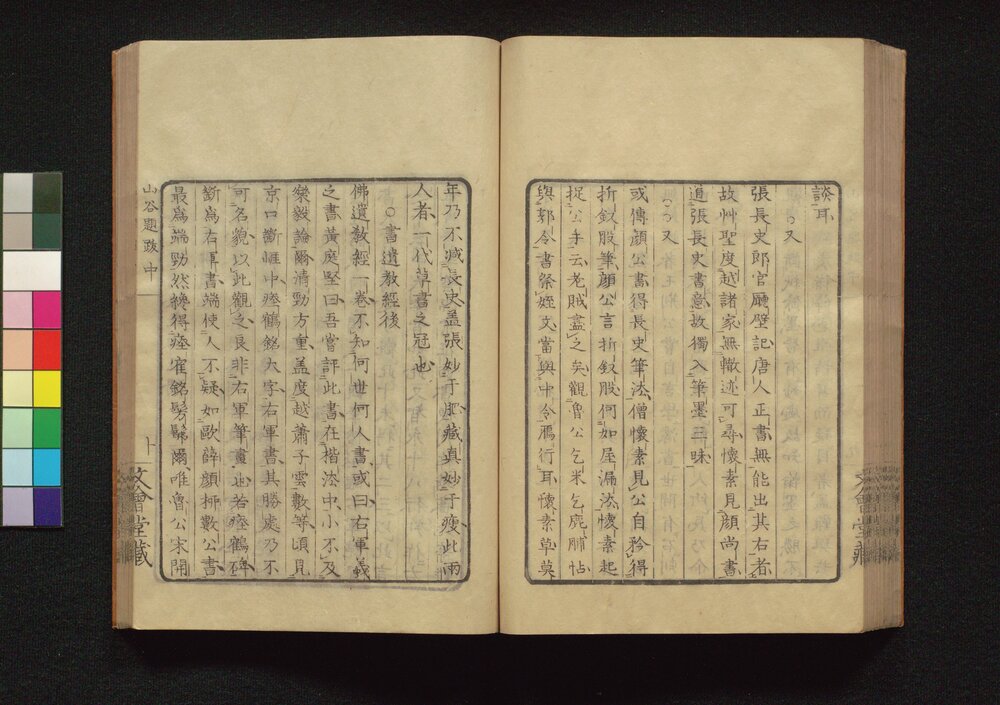 談耳
○又
張長史郎官廳壁記唐人正書無能出其右者
故艸聖度越諸家無轍迹可尋懷素見顏尚書
道張長史書意故獨入筆墨三昧
○又
或傳顏公書得長史筆法僧懷素見公自矜得
折釵股筆顏公言折釵股何如屋漏法懷素起
捉公手云老賊盡之矣觀魯公乞米乞鹿脯帖
與郭令書祭姪文當與中令鴈行耳懷素草莫
年乃不減長史蓋張妙于肥藏真妙于瘦此兩
人者一代草書之冠也
○書遺教經後
佛遺教經一卷不知何世何人書或曰右軍羲
之書黃庭堅曰吾嘗評此書在楷法中小不及
樂毅論爾清勁方重蓋度越蕭子雲數等頃見
京口斷崕中瘞鶴銘大字右軍書其勝處乃不
可名貌以此觀之良非右軍筆畫也若瘞鶴碑
斷爲右軍書端使人不疑如歐薛顏柳數公書
最爲端勁然纔得瘞寉銘髣髴爾唯魯公宋開
山谷題跋 中
卜
文會堂藏
文會堂藏